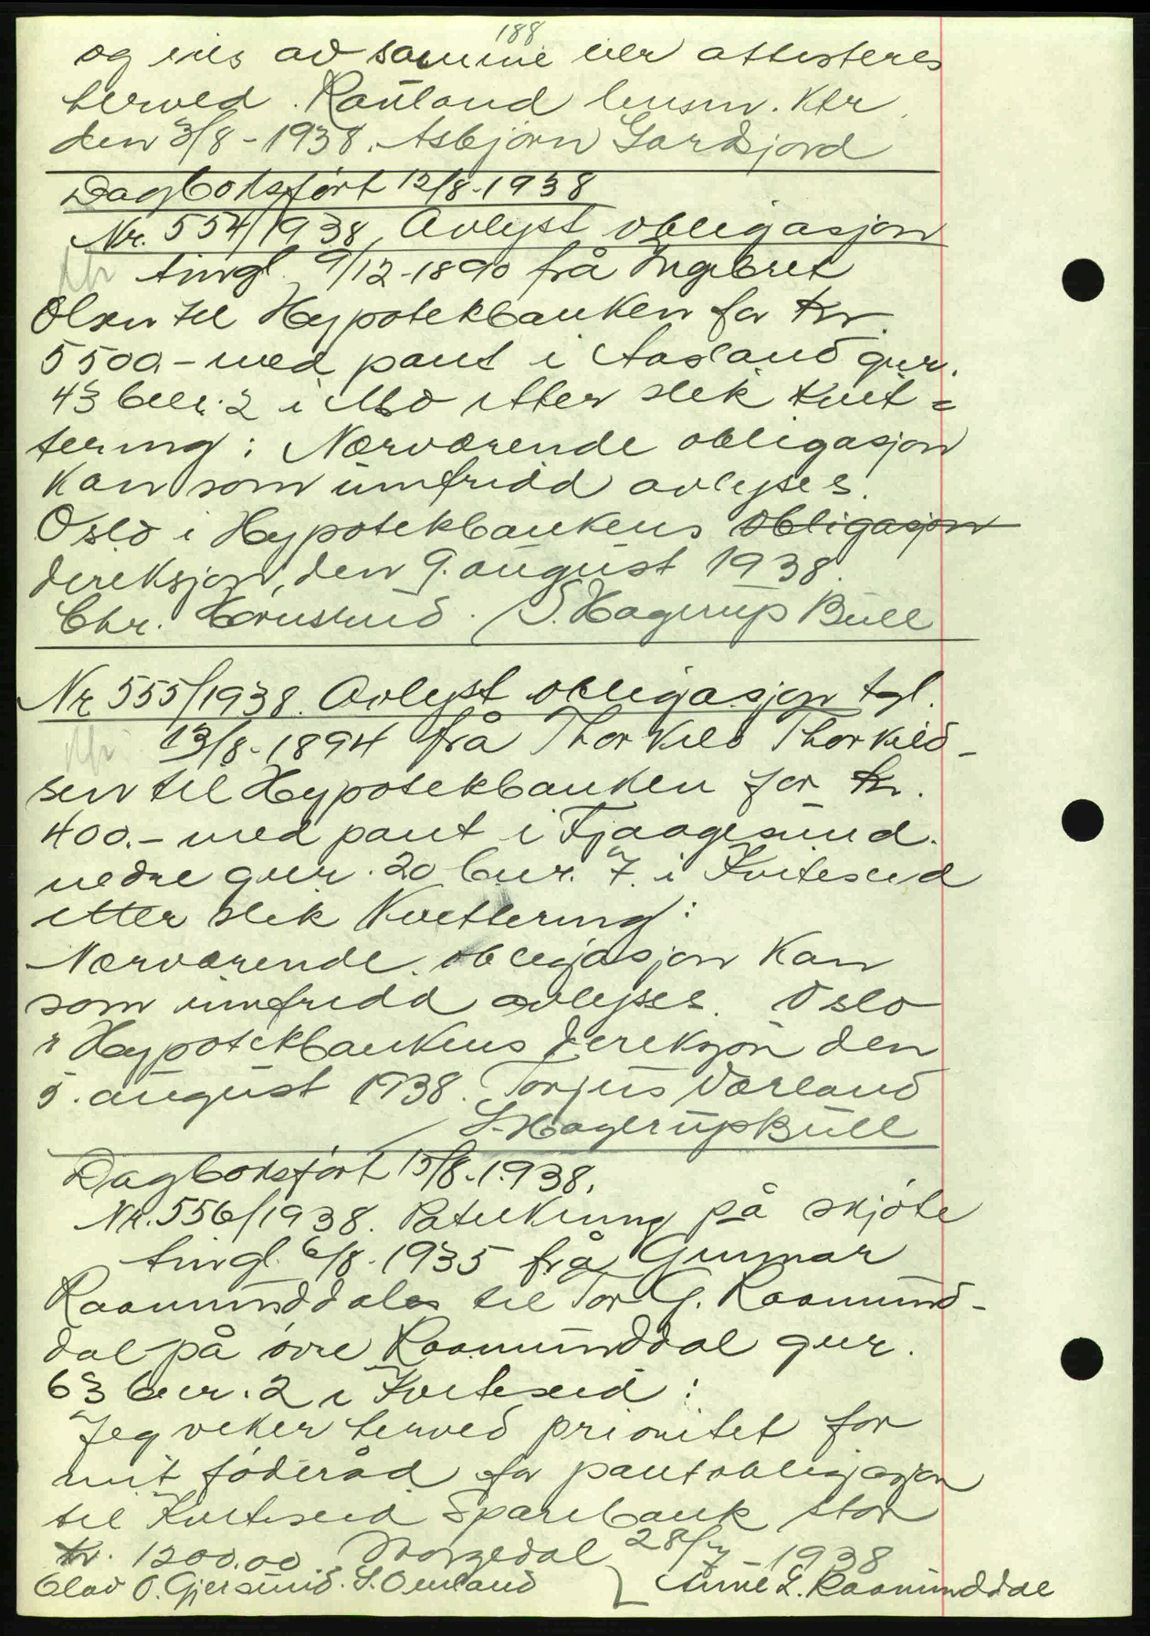 188
og eies av samme eier attesteres
herved. Rauland lensm. Ktr
den 3/8-1938. Asbjørn Gardsjord
Dagboksført 12/8-1938
Nr. 554/1938, Avlyst obligasjon
tingl. 9/12-1890 frå Ingebret
Olsen til Hypotekbanken for kr.
5500.- med pant i Aasland gnr.
43 bnr. 2 i Mo etter slik kvit=
tering: Nærværende obligasjon
kan som innfridd avlyses.
Oslo i Hypotekbankens obligasjon
direksjon, den 9. august 1938.
Chr. Hornsrud. S. Hagerup Bull
Nr. 555/1938. Avlyst obligasjon tgl.
13/8-1894 frå Thorkild Thorkild-
sen til Hypotekbanken for kr.
400.- med pant i Fjaagesund.
nedre gnr. 20 bnr. 7. i Kviteseid
etter slik Kvittering:
Nærværende obligasjon kan
som innfridd avlyses. Oslo
i Hypotekbankens direksjon den
5. august 1938. Torjus Værland
S. Hagerup Bull
Dagboksført 15/8.1938.
Nr. 556/1938. Påteikning på skjøte
tingl. 6/8-1935 frå Gunnar
Raamunddalen til Tor G. Raamund-
dal på øvre Raamunddal gnr.
63 bnr. 2 i Kviteseid:
Jeg viker herved prioritet for
mit føderåd for pantobligasjon
til Kviteseid Sparebank stor
kr. 1200.00. Morgedal 28/7-1938
Olav O. Gjersund. S. Omland Anne L. Raamunddal